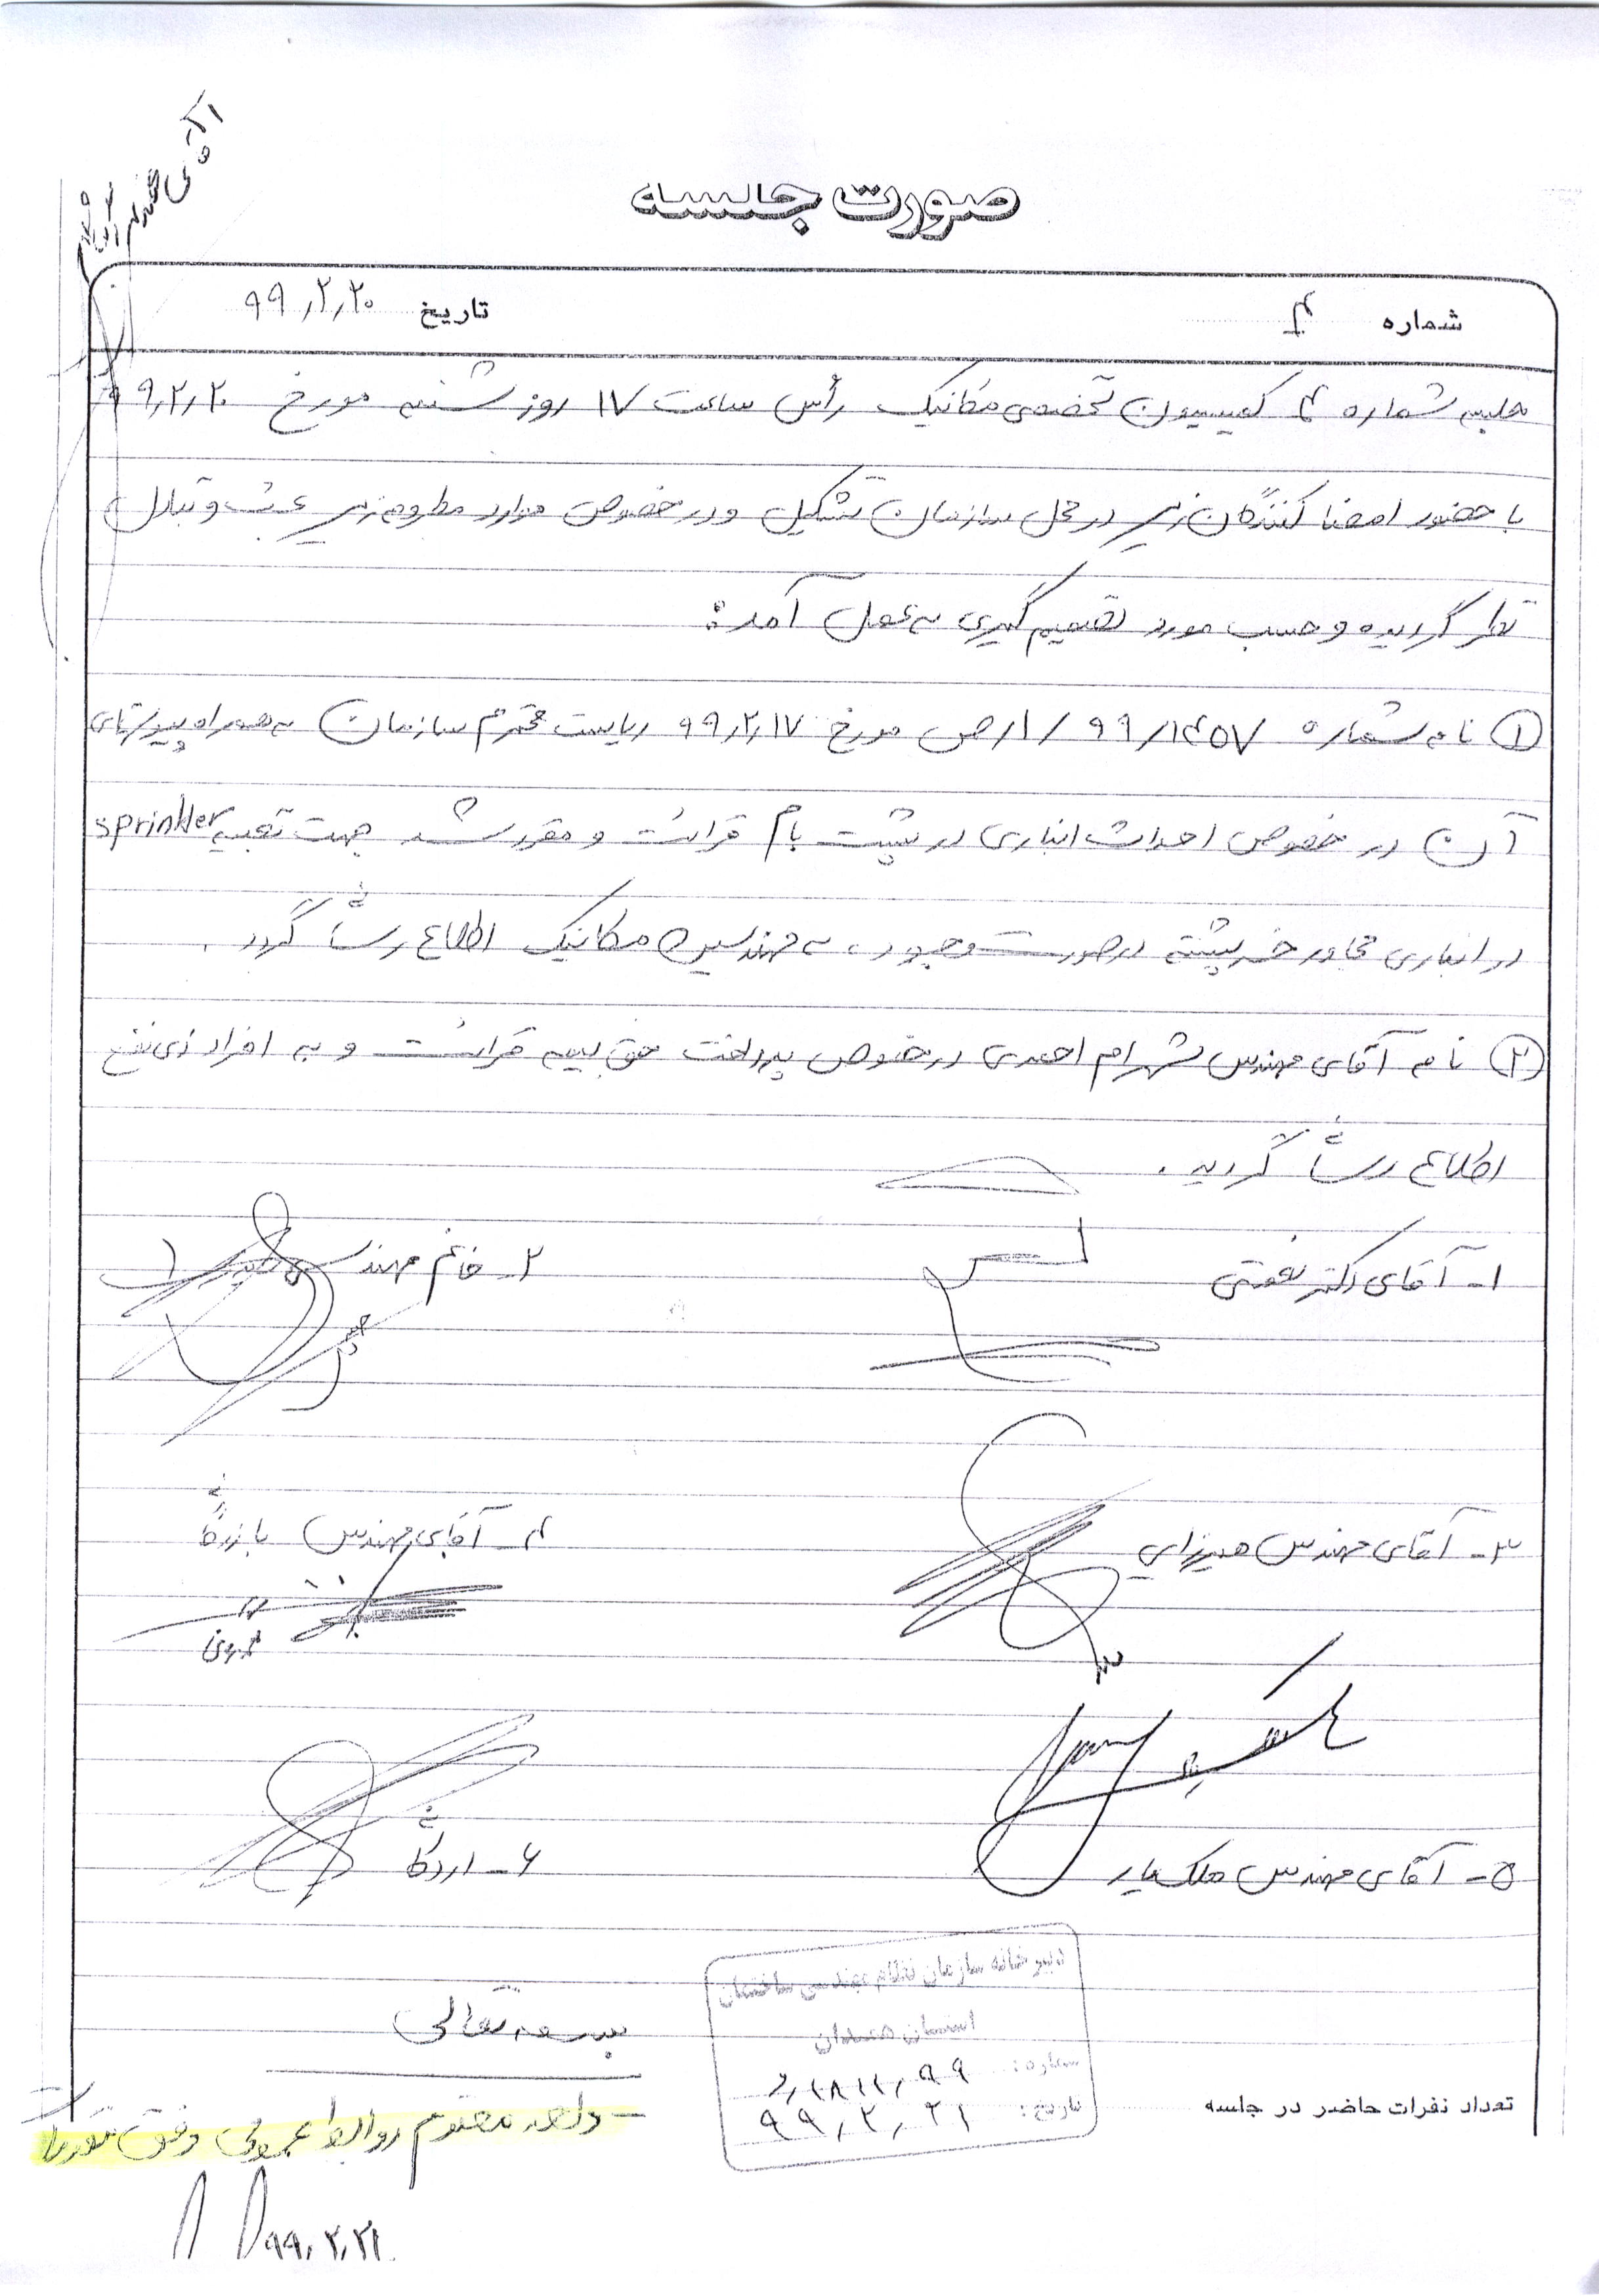 صورت جلسه
شماره ۴ تاریخ ۹۹٫۲٫۲۰
جلسه شماره ۴ کمیسیون تخصصی مکانیک رأس ساعت ۱۷ روز شنبه مورخ ۹۹٫۲٫۲۰
با حضور امضا کنندگان زیر در محل سازمان تشکیل و در خصوص موارد مطروحه زیر بحث و تبادل
نظر گردیده و حسب مورد تصمیم گیری به عمل آمد:
۱ نامه شماره ۹۹/۱۴۵۷/۱رص مورخ ۹۹٫۲٫۱۷ ریاست محترم سازمان به همراه پیوستهای
آن در خصوص احداث انباری در پشت بام قرائت و مقرر شد جهت تعبیه sprinkler
در انباری مجاور خرپشته در صورت وجود، به مهندسین مکانیک اطلاع رسانی گردد.
۲ نامه آقای مهندس شهرام احمدی در خصوص پرداخت حق بیمه قرائت و به افراد ذی نفع
اطلاع رسانی گردید.
۱- آقای دکتر نعمتی
۲- خانم مهندس
۳- آقای مهندس میرزایی
۴- آقای مهندس بازرگانی
۵- آقای مهندس ملک یار
۶- اردکانی
دبیرخانه سازمان نظام مهندسی ساختمان
استان همدان
شماره:
تاریخ: ۹۹٫۲٫۲۱
تعداد نفرات حاضر در جلسه
بسمه تعالی
- واحد محترم روابط عمومی وفق مقررات
۹۹٫۲٫۲۱